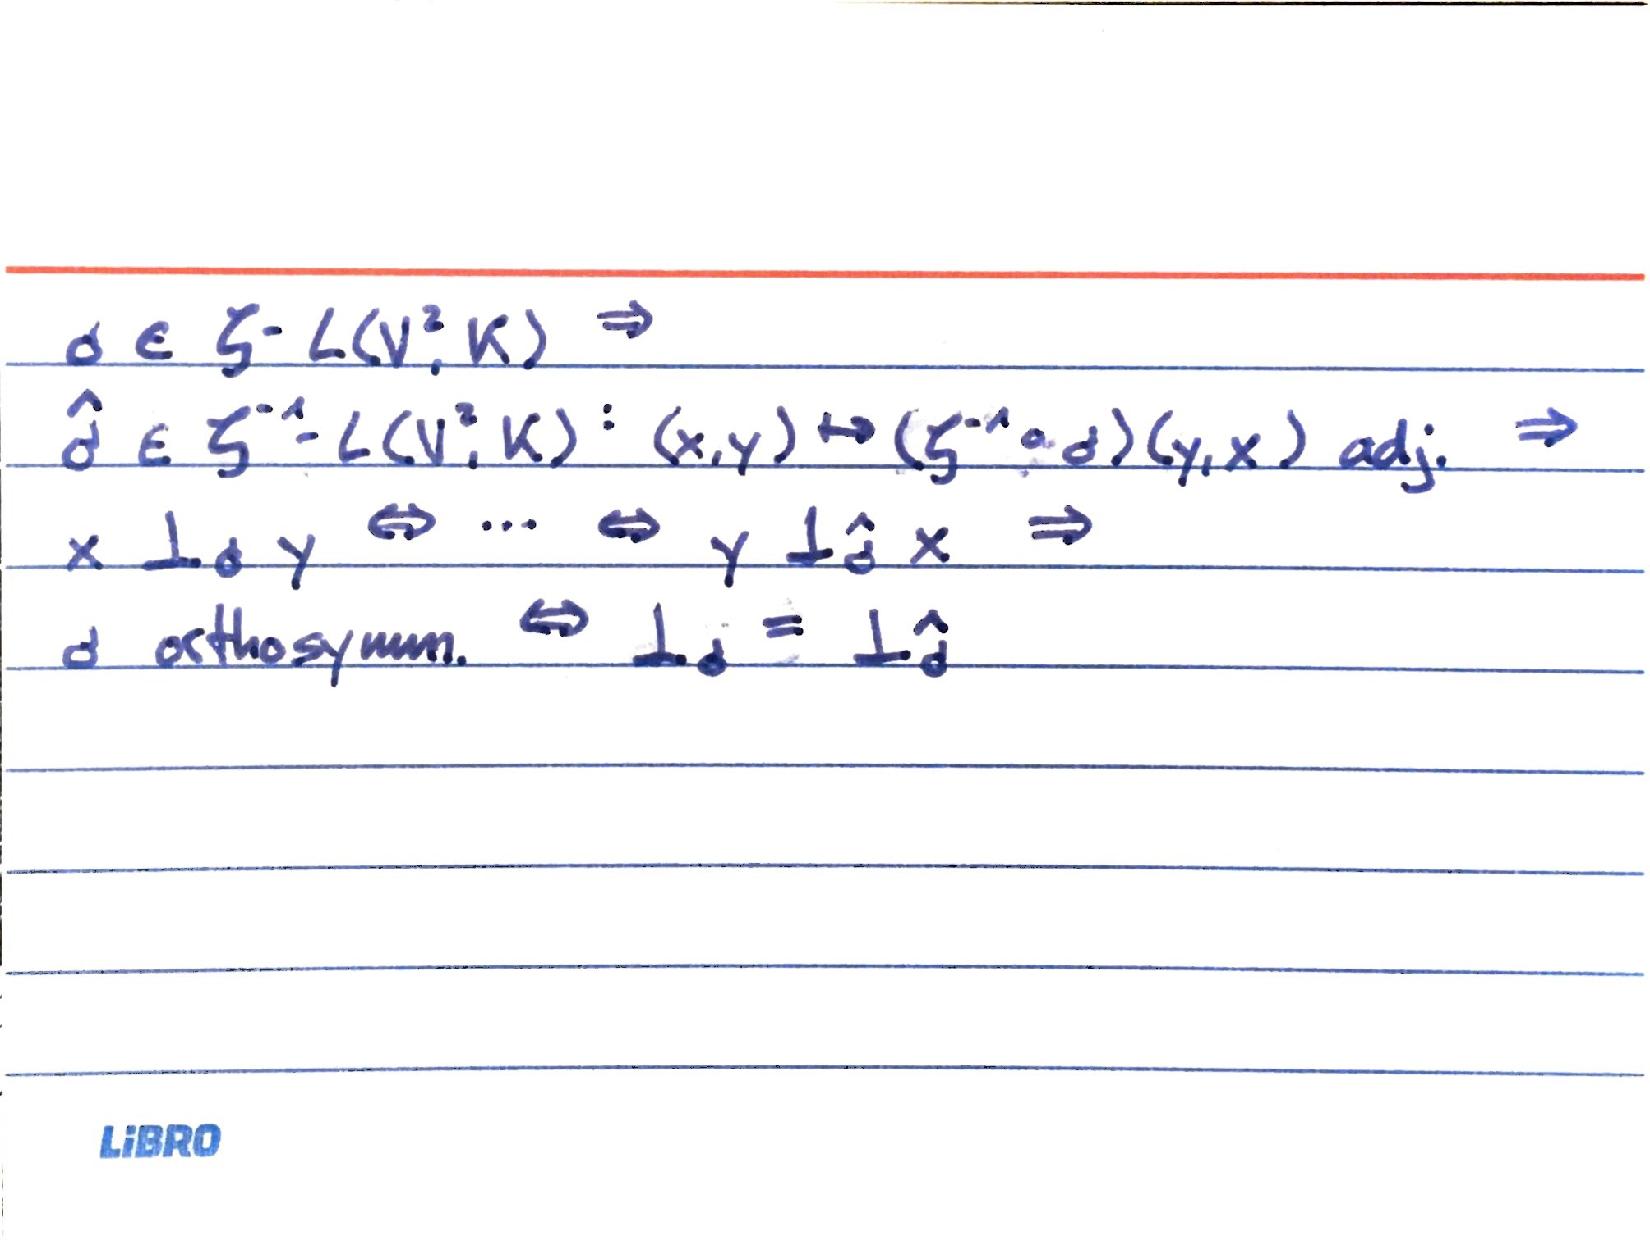 σ ∈ ζ-L(V²;K) ⇒
σ̂ ∈ ζ⁻¹-L(V²;K): (x,y) ↦ (ζ⁻¹∘σ)(y,x) adj. ⇒
x ⊥σ y ⇔ ... ⇔ y ⊥σ̂ x ⇒
σ orthosymm. ⇔ ⊥σ = ⊥σ̂
LiBRO